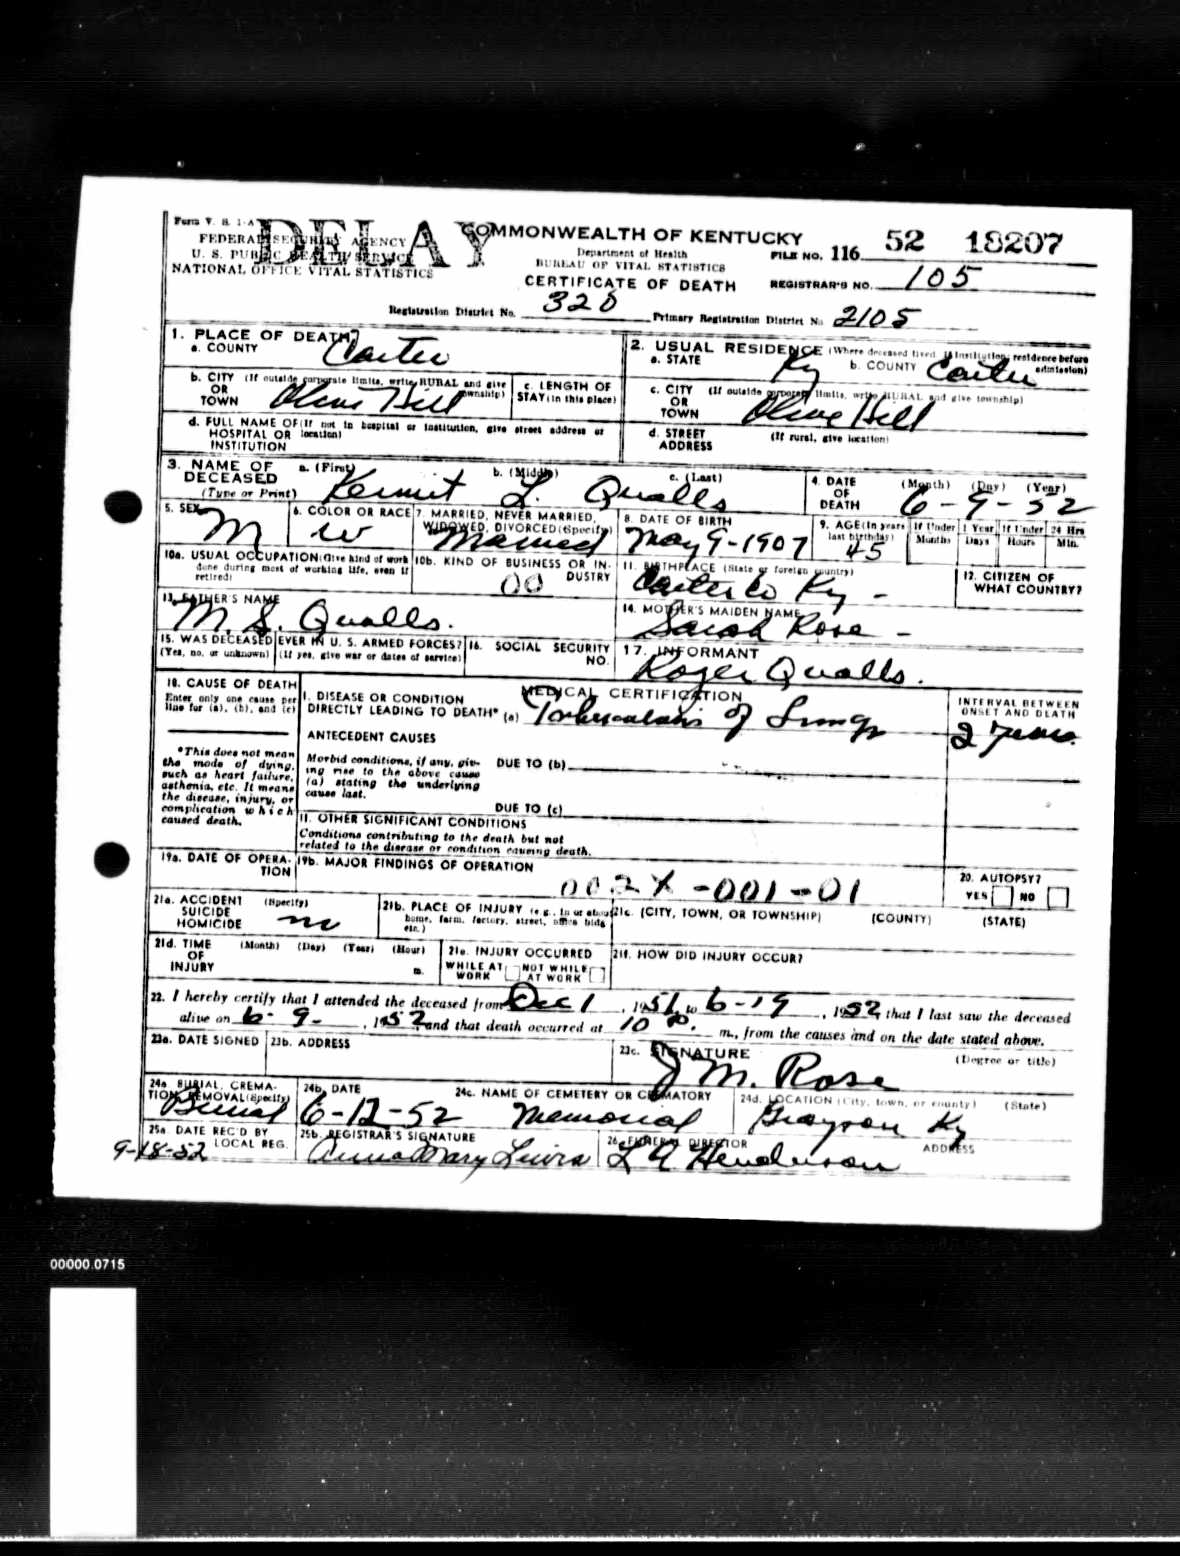 Form V. S. 1-A
DELAY
COMMONWEALTH OF KENTUCKY
FEDERAL SECURITY AGENCY
U. S. PUBLIC HEALTH SERVICE
NATIONAL OFFICE VITAL STATISTICS
Department of Health
BUREAU OF VITAL STATISTICS
CERTIFICATE OF DEATH
FILE NO. 116 52 18207
REGISTRAR'S NO. 105
Registration District No. 320 Primary Registration District No. 2105
1. PLACE OF DEATH
a. COUNTY Carter
2. USUAL RESIDENCE (Where deceased lived. If institution: residence before admission)
a. STATE Ky b. COUNTY Carter
b. CITY (If outside corporate limits, write RURAL and give township)
OR
TOWN Olive Hill
c. LENGTH OF
STAY (in this place)
c. CITY (If outside corporate limits, write RURAL and give township)
OR
TOWN Olive Hill
d. FULL NAME OF (If not in hospital or institution, give street address or location)
HOSPITAL OR
INSTITUTION
d. STREET (If rural, give location)
ADDRESS
3. NAME OF DECEASED
(Type or Print)
a. (First) b. (Middle) c. (Last)
Kermit L. Qualls
4. DATE OF DEATH (Month) (Day) (Year)
6-9-52
5. SEX
M
6. COLOR OR RACE
W
7. MARRIED, NEVER MARRIED,
WIDOWED, DIVORCED (Specify)
Married
8. DATE OF BIRTH
May 9-1907
9. AGE (In years last birthday)
45
If Under 1 Year Months Days
If Under 24 Hrs Hours Min.
10a. USUAL OCCUPATION (Give kind of work done during most of working life, even if retired)
10b. KIND OF BUSINESS OR INDUSTRY
00
11. BIRTHPLACE (State or foreign country)
Carter Co Ky -
12. CITIZEN OF
WHAT COUNTRY?
13. FATHER'S NAME
M. S. Qualls.
14. MOTHER'S MAIDEN NAME
Sarah Rose -
15. WAS DECEASED EVER IN U. S. ARMED FORCES?
(Yes, no, or unknown) (If yes, give war or dates of service)
16. SOCIAL SECURITY
NO.
17. INFORMANT
Roger Qualls.
18. CAUSE OF DEATH
Enter only one cause per line for (a), (b), and (c)
MEDICAL CERTIFICATION
INTERVAL BETWEEN
ONSET AND DEATH
I. DISEASE OR CONDITION
DIRECTLY LEADING TO DEATH* (a) Tuberculosis of Lungs
2 years.
*This does not mean the mode of dying, such as heart failure, asthenia, etc. It means the disease, injury, or complication which caused death.
ANTECEDENT CAUSES
Morbid conditions, if any, giving rise to the above cause (a) stating the underlying cause last.
DUE TO (b)
DUE TO (c)
II. OTHER SIGNIFICANT CONDITIONS
Conditions contributing to the death but not
related to the disease or condition causing death.
19a. DATE OF OPERATION
19b. MAJOR FINDINGS OF OPERATION
002X -001-01
20. AUTOPSY?
YES NO
21a. ACCIDENT (Specify)
SUICIDE
HOMICIDE
no
21b. PLACE OF INJURY (e.g., in or about home, farm, factory, street, office bldg etc.)
21c. (CITY, TOWN, OR TOWNSHIP) (COUNTY) (STATE)
21d. TIME (Month) (Day) (Year) (Hour)
OF
INJURY m.
21e. INJURY OCCURRED
WHILE AT WORK NOT WHILE AT WORK
21f. HOW DID INJURY OCCUR?
22. I hereby certify that I attended the deceased from Dec 1, 1951, to 6-19, 1952, that I last saw the deceased
alive on 6-9-, 1952, and that death occurred at 10 P. m., from the causes and on the date stated above.
23a. DATE SIGNED
23b. ADDRESS
23c. SIGNATURE (Degree or title)
J M. Rose
24a. BURIAL, CREMATION, REMOVAL (Specify)
Burial
24b. DATE
6-12-52
24c. NAME OF CEMETERY OR CREMATORY
Memorial
24d. LOCATION (City, town, or county) (State)
Grayson Ky
25a. DATE REC'D BY
LOCAL REG.
9-18-52
25b. REGISTRAR'S SIGNATURE
Anna Mary Lewis
26. FUNERAL DIRECTOR ADDRESS
L A Henderson
00000.0715